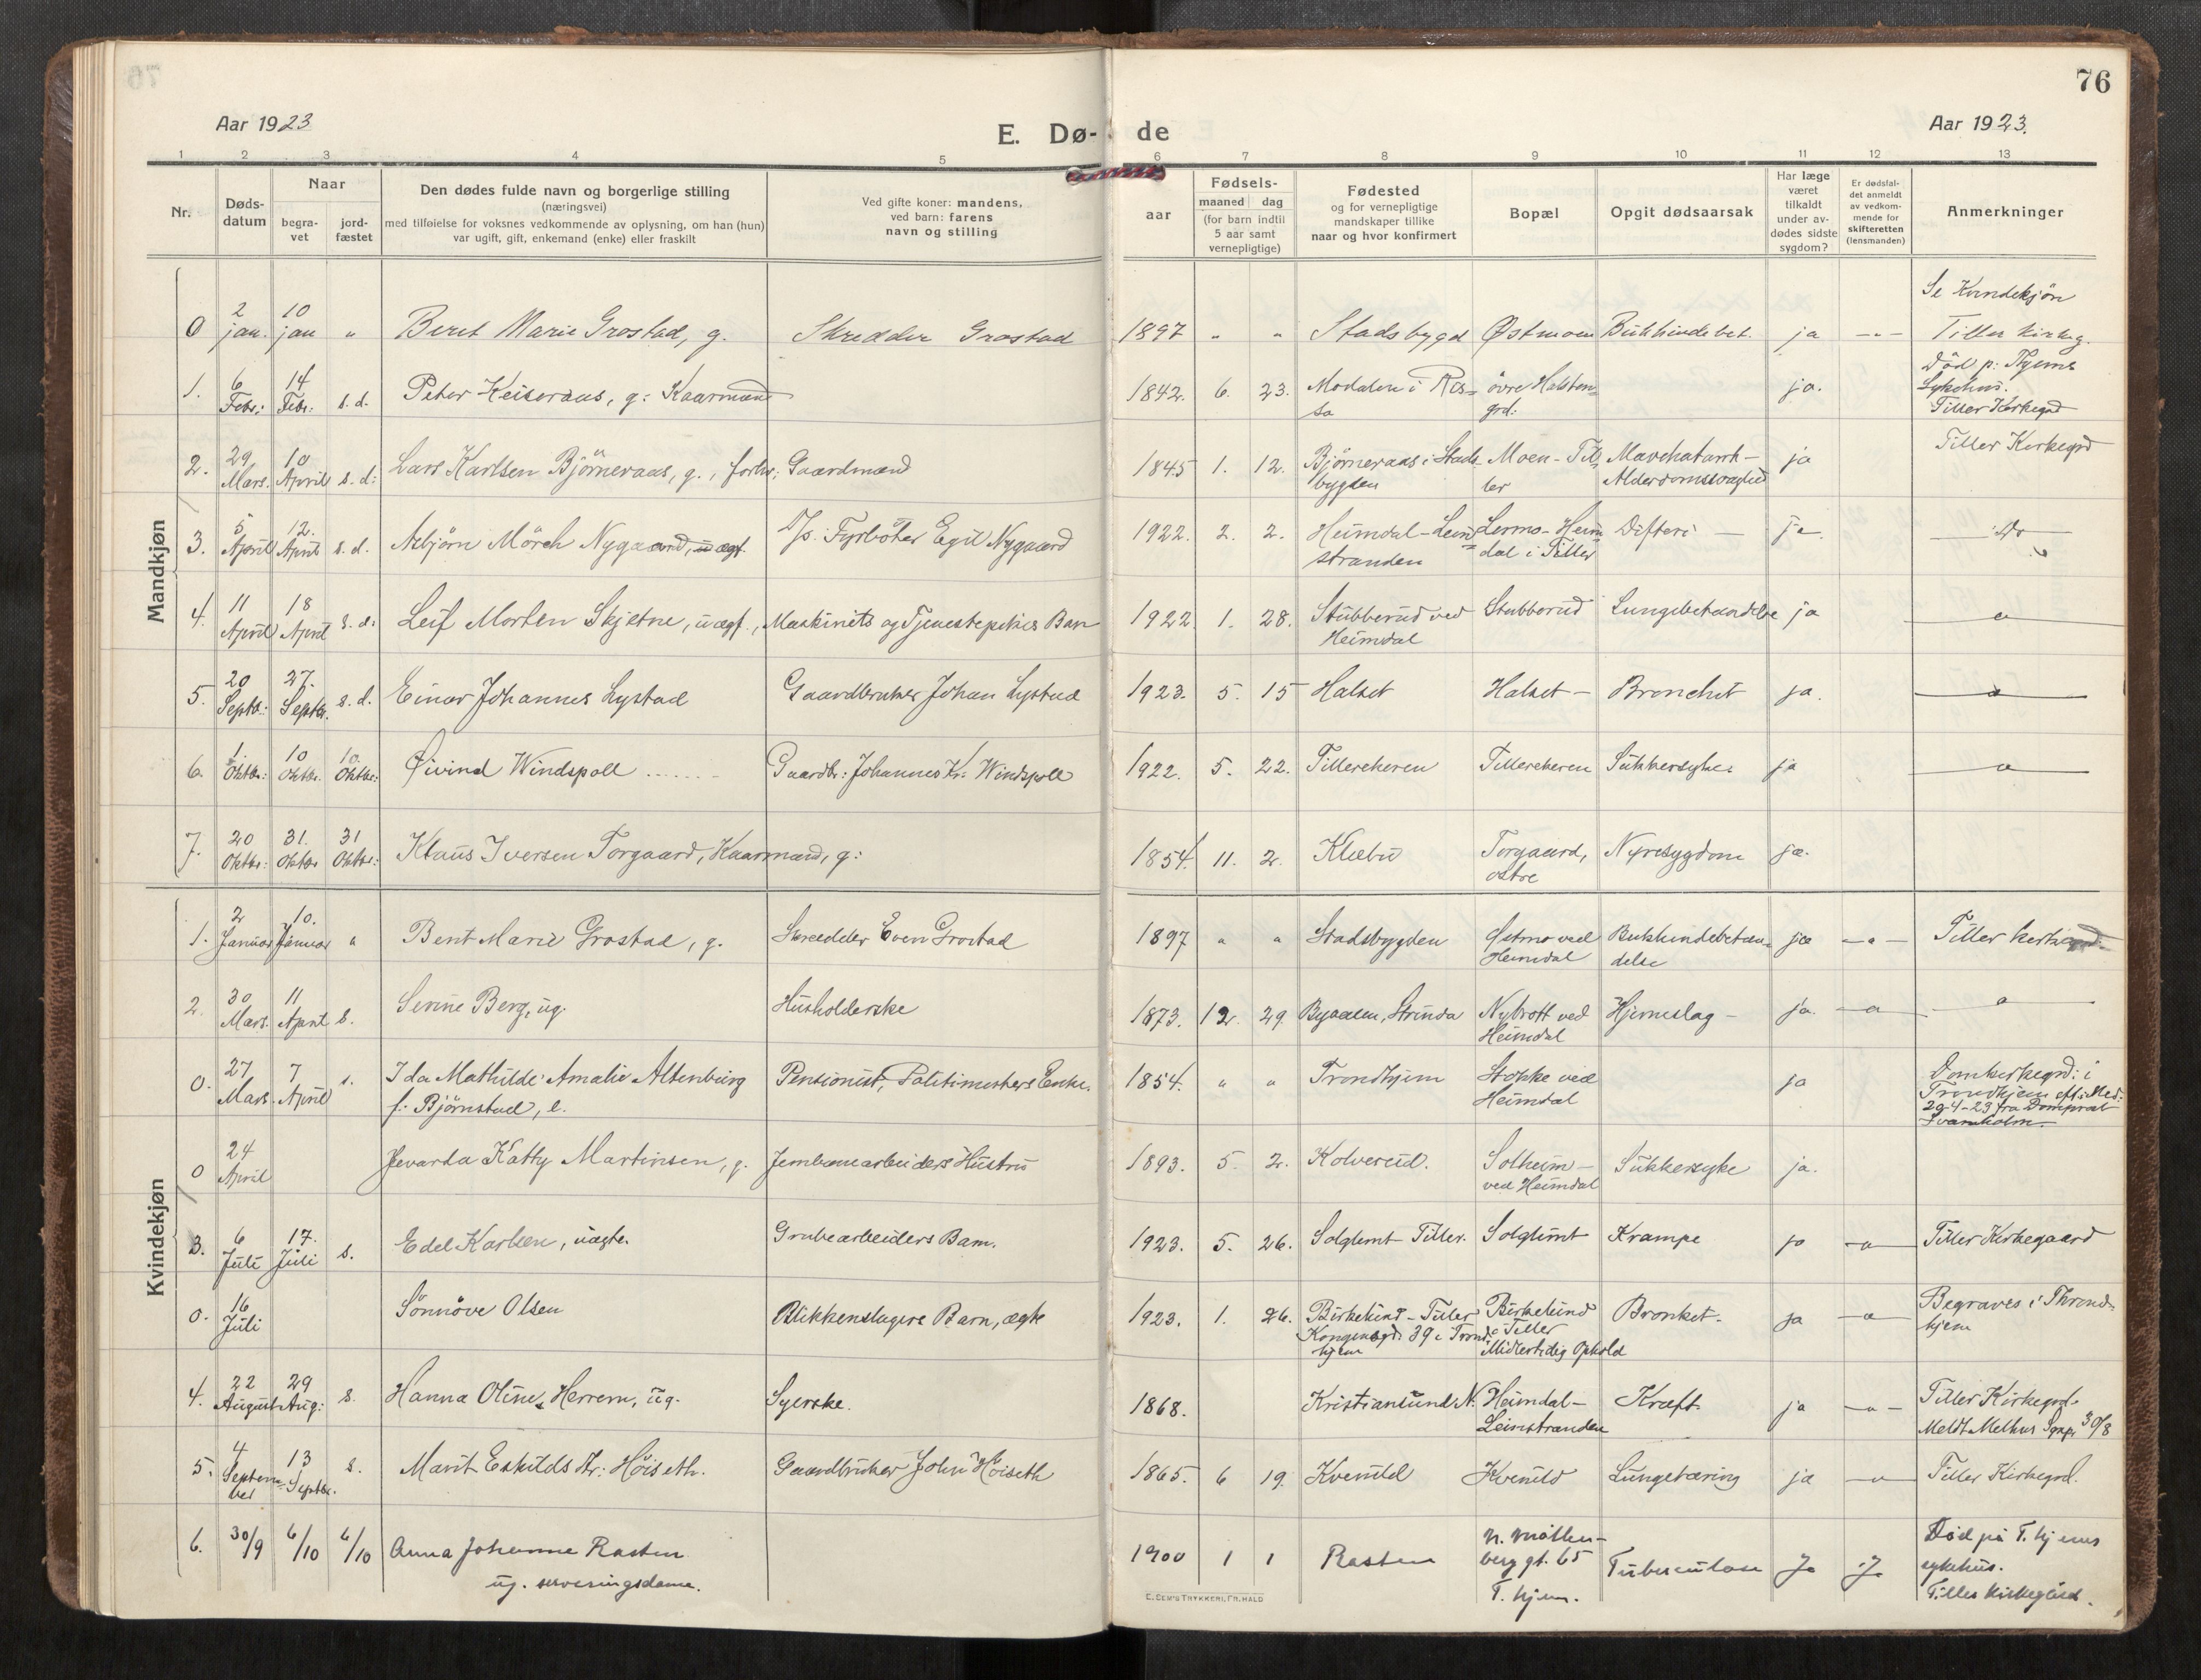 76
Aar 1923
E. Dø- de
Aar 1923.
1 2 3 4 5 6 7 8 9 10 11 12 13
Nr.
Døds-
datum
Naar
begra-
vet
jord-
fæstet
Den dødes fulde navn og borgerlige stilling
(næringsvei)
med tilføielse for voksnes vedkommende av oplysning, om han (hun)
var ugift, gift, enkemand (enke) eller fraskilt
Ved gifte koner: mandens,
ved barn: farens
navn og stilling
aar
Fødsels-
maaned dag
(for barn indtil
5 aar samt
vernepligtige)
Fødested
og for vernepligtige
mandskaper tillike
naar og hvor konfirmert
Bopæl
Opgit dødsaarsak
Har læge
været
tilkaldt
under av-
dødes sidste
sygdom?
Er dødsfal-
det anmeldt
av vedkom-
mende for
skifteretten
(lensmanden)
Anmerkninger
Mandkjøn
Se Kvindekjøn
0 2 jan. 10 jan " Beret Marie Grostad, g. Skredder Grostad 1897 " " Stadsbygd Østmoen Bukhindebet. ja -"- Tiller Kirkeg.
1. 6 Febr: 14 Febr: s. d. Peter Keiseraas, g: Kaarmand 1842. 6. 23. Modalen i Ris=
sa øvre Halsten
grd: ja. Død p: Thjems
Sykehus.
Tiller Kirkegrd
2. 29 Mars. 10 April s. d: Lars Karlsen Bjørneraas, g., forhv: Gaardmand 1845 1. 12. Bjørneraas i Stads-
bygden Moen - Til-
ler Mavekatarrh -
Alderdomssvaghed ja Tiller Kirkegrd
3. 5 April 12. April s. d. Asbjørn Mörch Nygaard, uægt. Fyrbøter Egil Nygaard 1922. 2. 2. Heimdal - Lein
stranden Lermo - Heim
dal i Tiller Difteri - ja. - Do -
4. 11 April 18 April s. d: Leif Morten Skjetne, uægt., Maskinists og Tjenestepikes Barn 1922 1. 28. Stubberud ved
Heimdal Stubberud Lungebetændelse ja - " -
5. 20 Septbr: 27. Septbr. s. d. Einar Johannes Lystad Gaardbruker Johan Lystad 1923. 5. 15 Halset Halset - Bronchit ja. - " -
6. 1. Oktbr: 10 Oktbr. 10. Oktbr: Øivind Windspoll ....... Gaardbr: Johannes Kr: Windspoll 1922. 5. 22. Tillereheren Tillereheren Sukkersyke ja - " -
7. 20 Oktbr: 31. Oktbr 31 Oktbr: Klaus Iversen Torgaard, Kaarmand, g: 1854. 11. 2. Klæbu Torgaard,
østre Nyresygdom ja.
Kvindekjøn
1. 2 Januar 10. Januar " Berit Marie Grostad, g. Skredder Even Grostad 1897 " " Stadsbygden Østmo ved
Heimdal Bukhindebetæn-
delse ja - " - Tiller kirkegrd.
2. 30 Mars. 11 April s. Serine Berg, ug. Husholderske 1873. 12. 29. Byaasen, Strinda Nybrott ved
Heimdal Hjerneslag - ja. - " - - " -
0. 27 Mars. 7 April s. Ida Mathilde Amalie Altenburg
f: Bjørnstad, e. Pensionist, Politimesters Enke. 1854. " " Trondhjem Stokke ved
Heimdal ja Domkirkegrd: i
Trondhjem eft: Med:
29-4-23 fra Domprost
Svanholm.
0 24 April Jevarda Katty Martinsen, g. Jernbanearbeiders Hustru 1893. 5. 2. Kolvereid. Solheim -
ved Heimdal Sukkersyke ja.
3. 6 Juli 17. Juli s. Edel Karlsen, uægte. Grubearbeiders Barn. 1923. 5. 26. Solglimt Tiller. Solglimt Krampe ja - " - Tiller Kirkegaard
0. 16 Juli Sönnöve Olsen Blikkenslagers Barn, ægte 1923. 1. 26. Birkelund - Tiller
Kongensgd: 39 i Trond
hjem Birkelund
i Tiller
Midlertidig Ophold Bronket. ja - " - Begraves i Thrond-
hjem
4. 22 August 29 Aug: s. Hanna Oline Herrem, ug. Syerske. 1868. Kristiansund N. Heimdal -
Leinstranden Kræft. ja - " - Tiller Kirkegrd.
Meldt Melhus Sgpr. 30/8
5. 4 Septem-
ber 13 Septbr. s. Marit Eskilds Dtr: Høiseth. Gaardbruker John Høiseth 1865. 6 19. Kvenild Kvenild Lungetæring ja - " - Tiller Kirkegrd.
6. 30/9 6/10 6/10 Anna Johanne Rasten
ug. serveringsdame. 1900 1 1 Rasten N. Møllen-
berg gt. 65
T. hjem. Tuberculose Ja Ja Død på T. hjems
sykehus.
Tiller kirkegård.
E. EEM'S TRYKKERI, FR. HALD